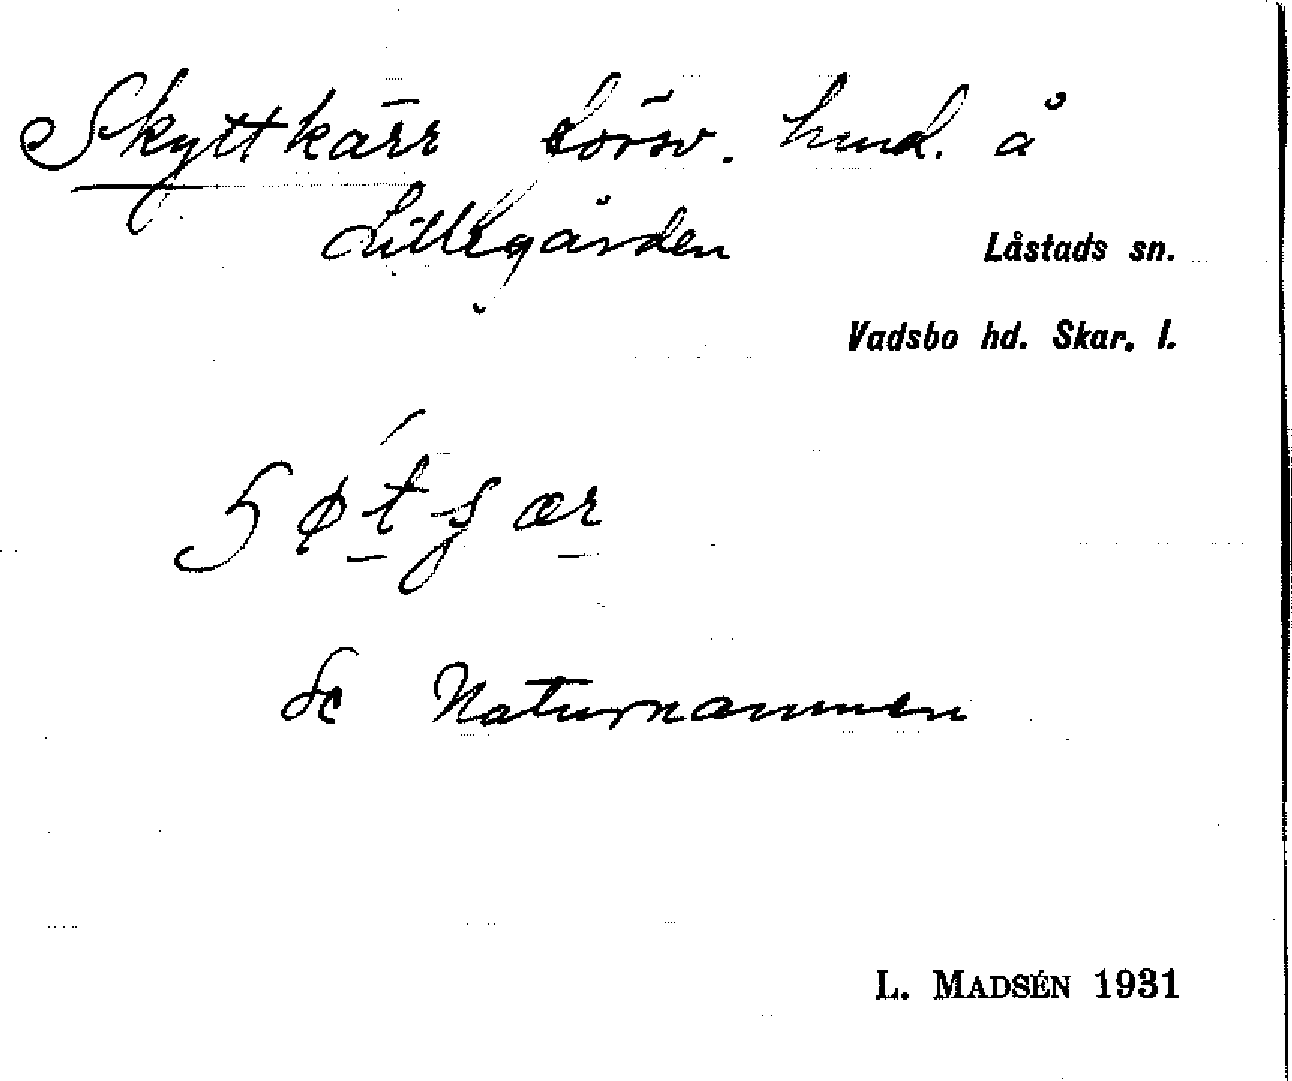 Skyttkärr försv. hmd. å
Lillegården
Låstads sn.
Vadsbo hd. Skar. l.
Se Naturnamnen
L. MADSÉN 1931